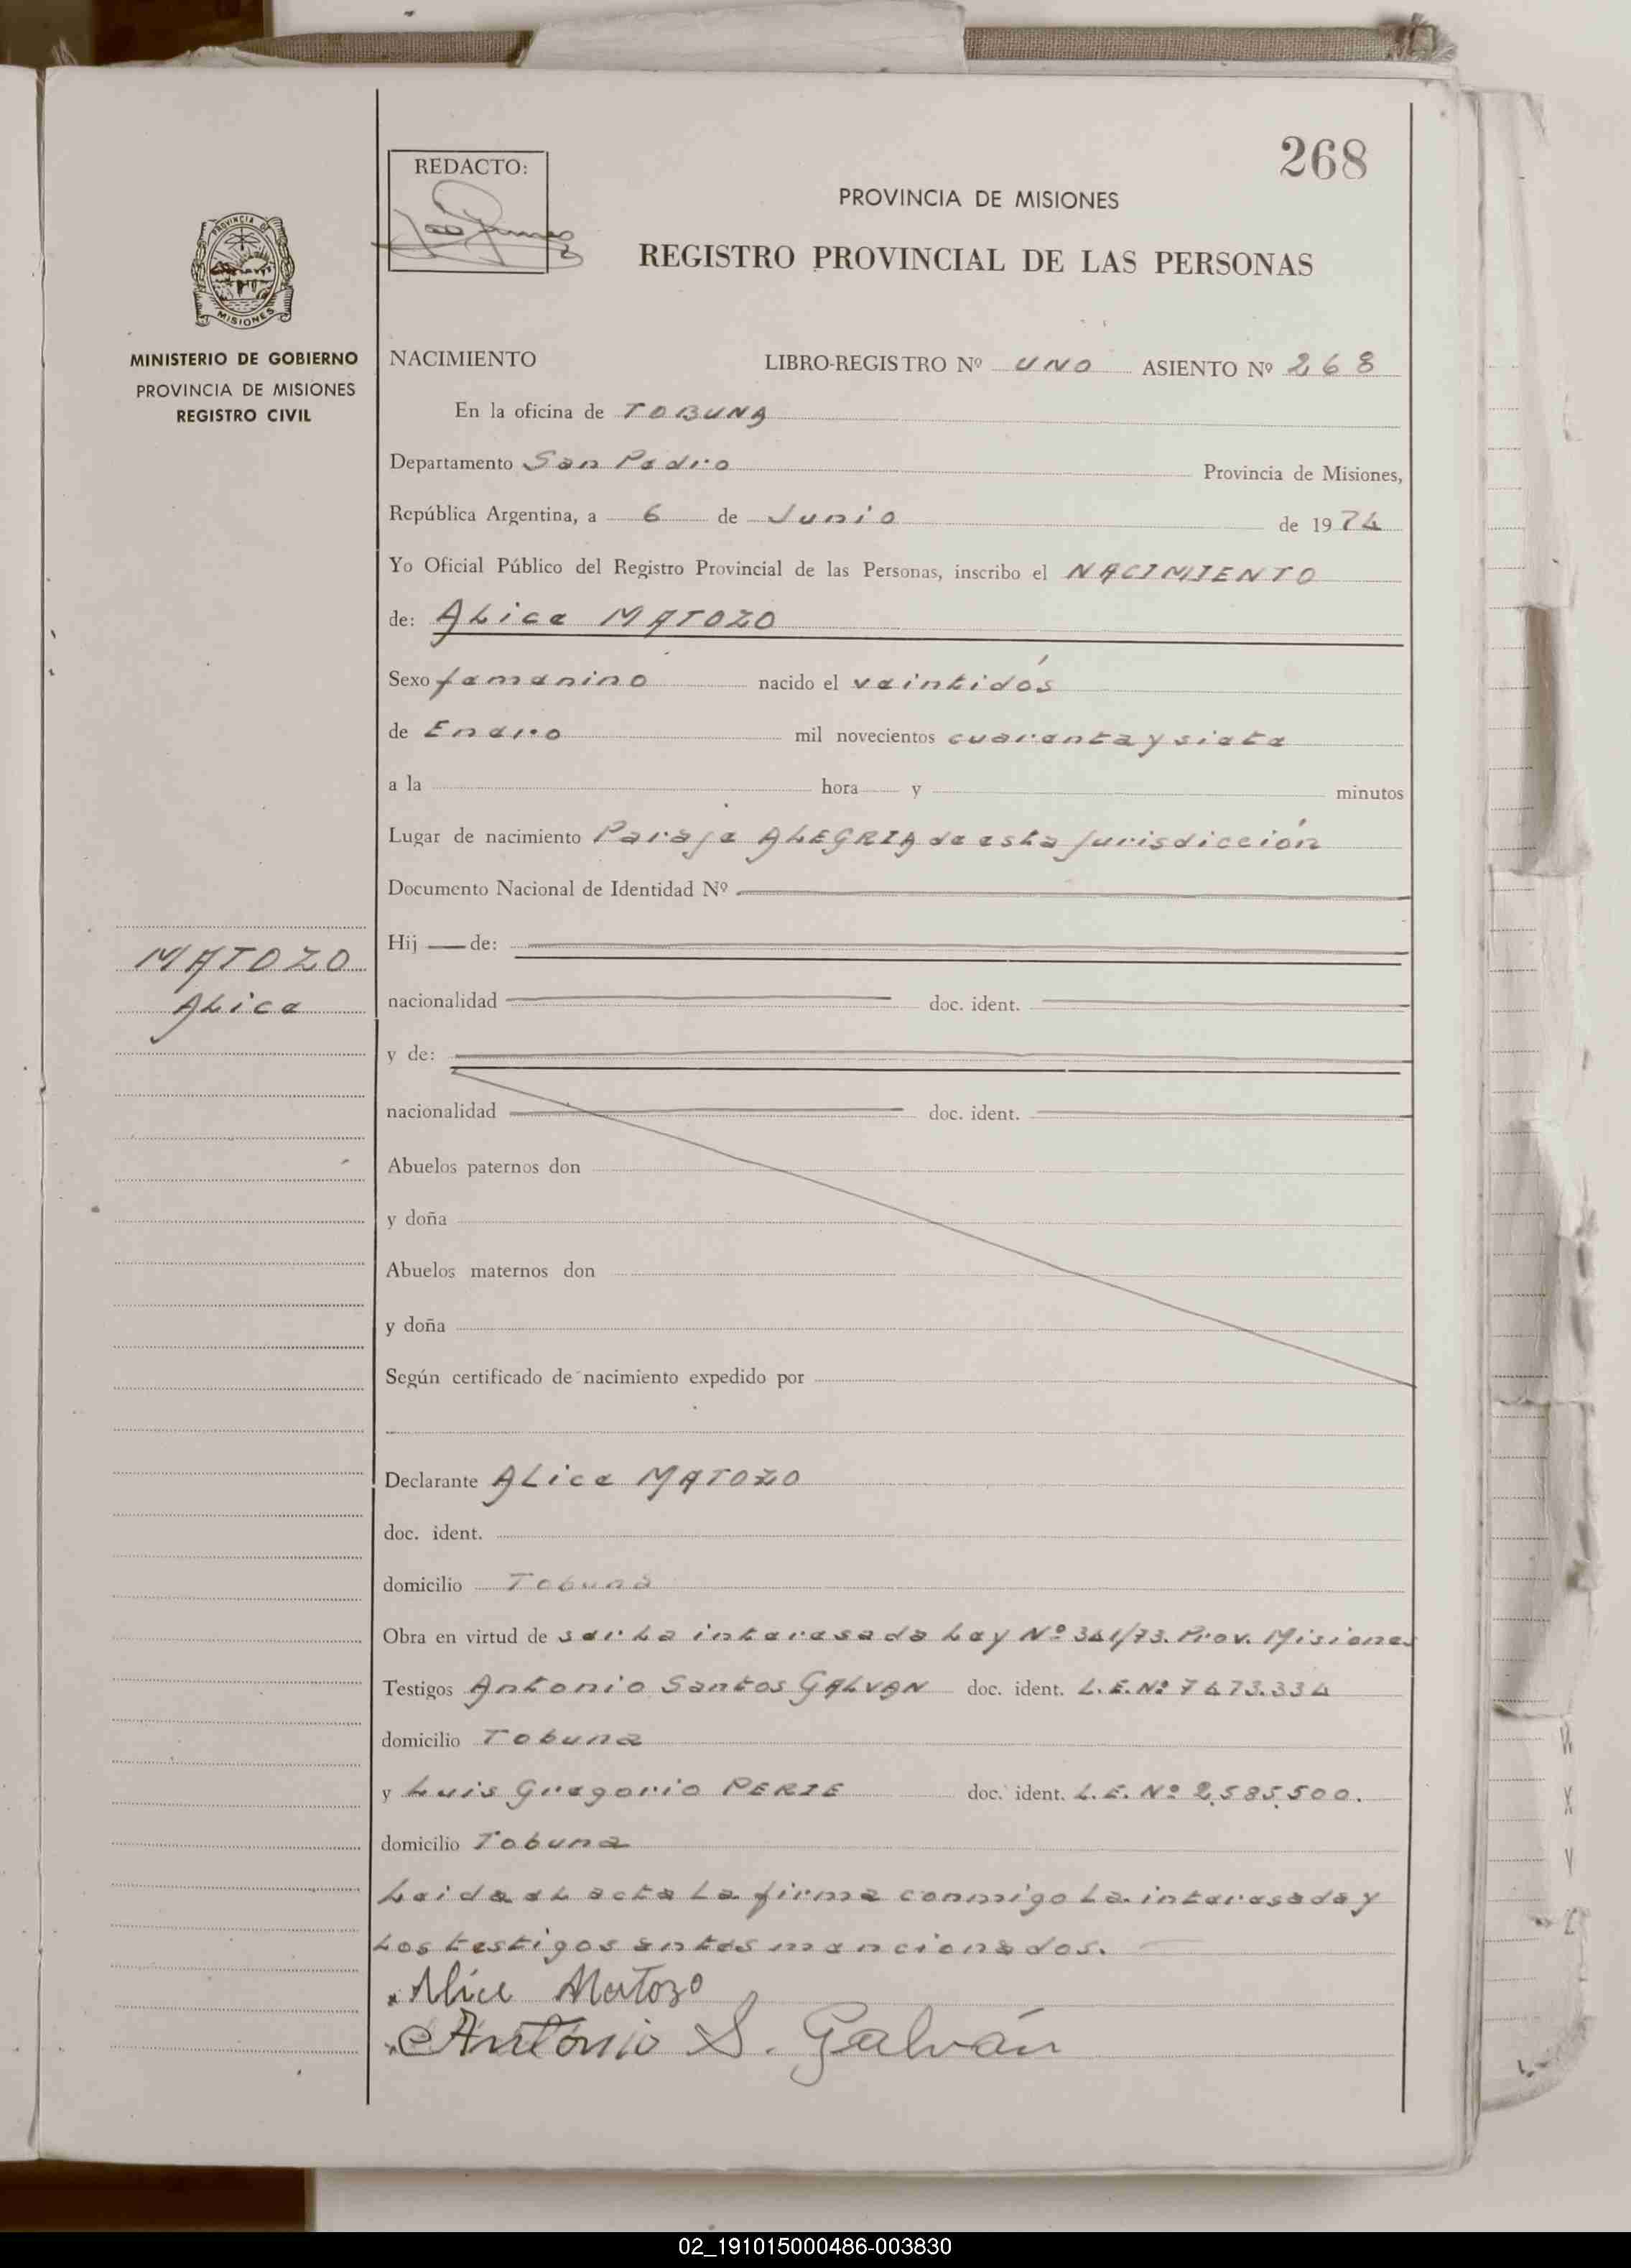 268
REDACTO:
PROVINCIA DE MISIONES
REGISTRO PROVINCIAL DE LAS PERSONAS
PROVINCIA DE
MISIONES
MINISTERIO DE GOBIERNO
PROVINCIA DE MISIONES
REGISTRO CIVIL
NACIMIENTO LIBRO-REGISTRO Nº UNO ASIENTO Nº 268
En la oficina de TOBUNA
Departamento San Pedro Provincia de Misiones,
República Argentina, a 6 de Junio de 1974
Yo Oficial Público del Registro Provincial de las Personas, inscribo el NACIMIENTO
de: ALice MATOZO
Sexo femenino nacido el veintidós
de Enero mil novecientos cuarenta y siete
a la hora y minutos
Lugar de nacimiento Paraje ALEGRIA de esta jurisdicción
Documento Nacional de Identidad Nº
MATOZO
ALice
Hij de:
nacionalidad doc. ident.
y de:
nacionalidad doc. ident.
Abuelos paternos don
y doña
Abuelos maternos don
y doña
Según certificado de nacimiento expedido por
Declarante ALice MATOZO
doc. ident.
domicilio Tobuna
Obra en virtud de ser La interesada Ley Nº 341/73. Prov. Misiones
Testigos Antonio Santos GALVAN doc. ident. L.E.Nº 7473.334
domicilio Tobuna
y Luis Gregorio PERIE doc. ident. L.E. Nº 2.585.500.
domicilio Tobuna
Leida eL acta La firma conmigo La interesada y
Los testigos antes mencionados.
Alice Matozo
Antonio S. Galván
W
X
Y
Z
02_191015000486-003830